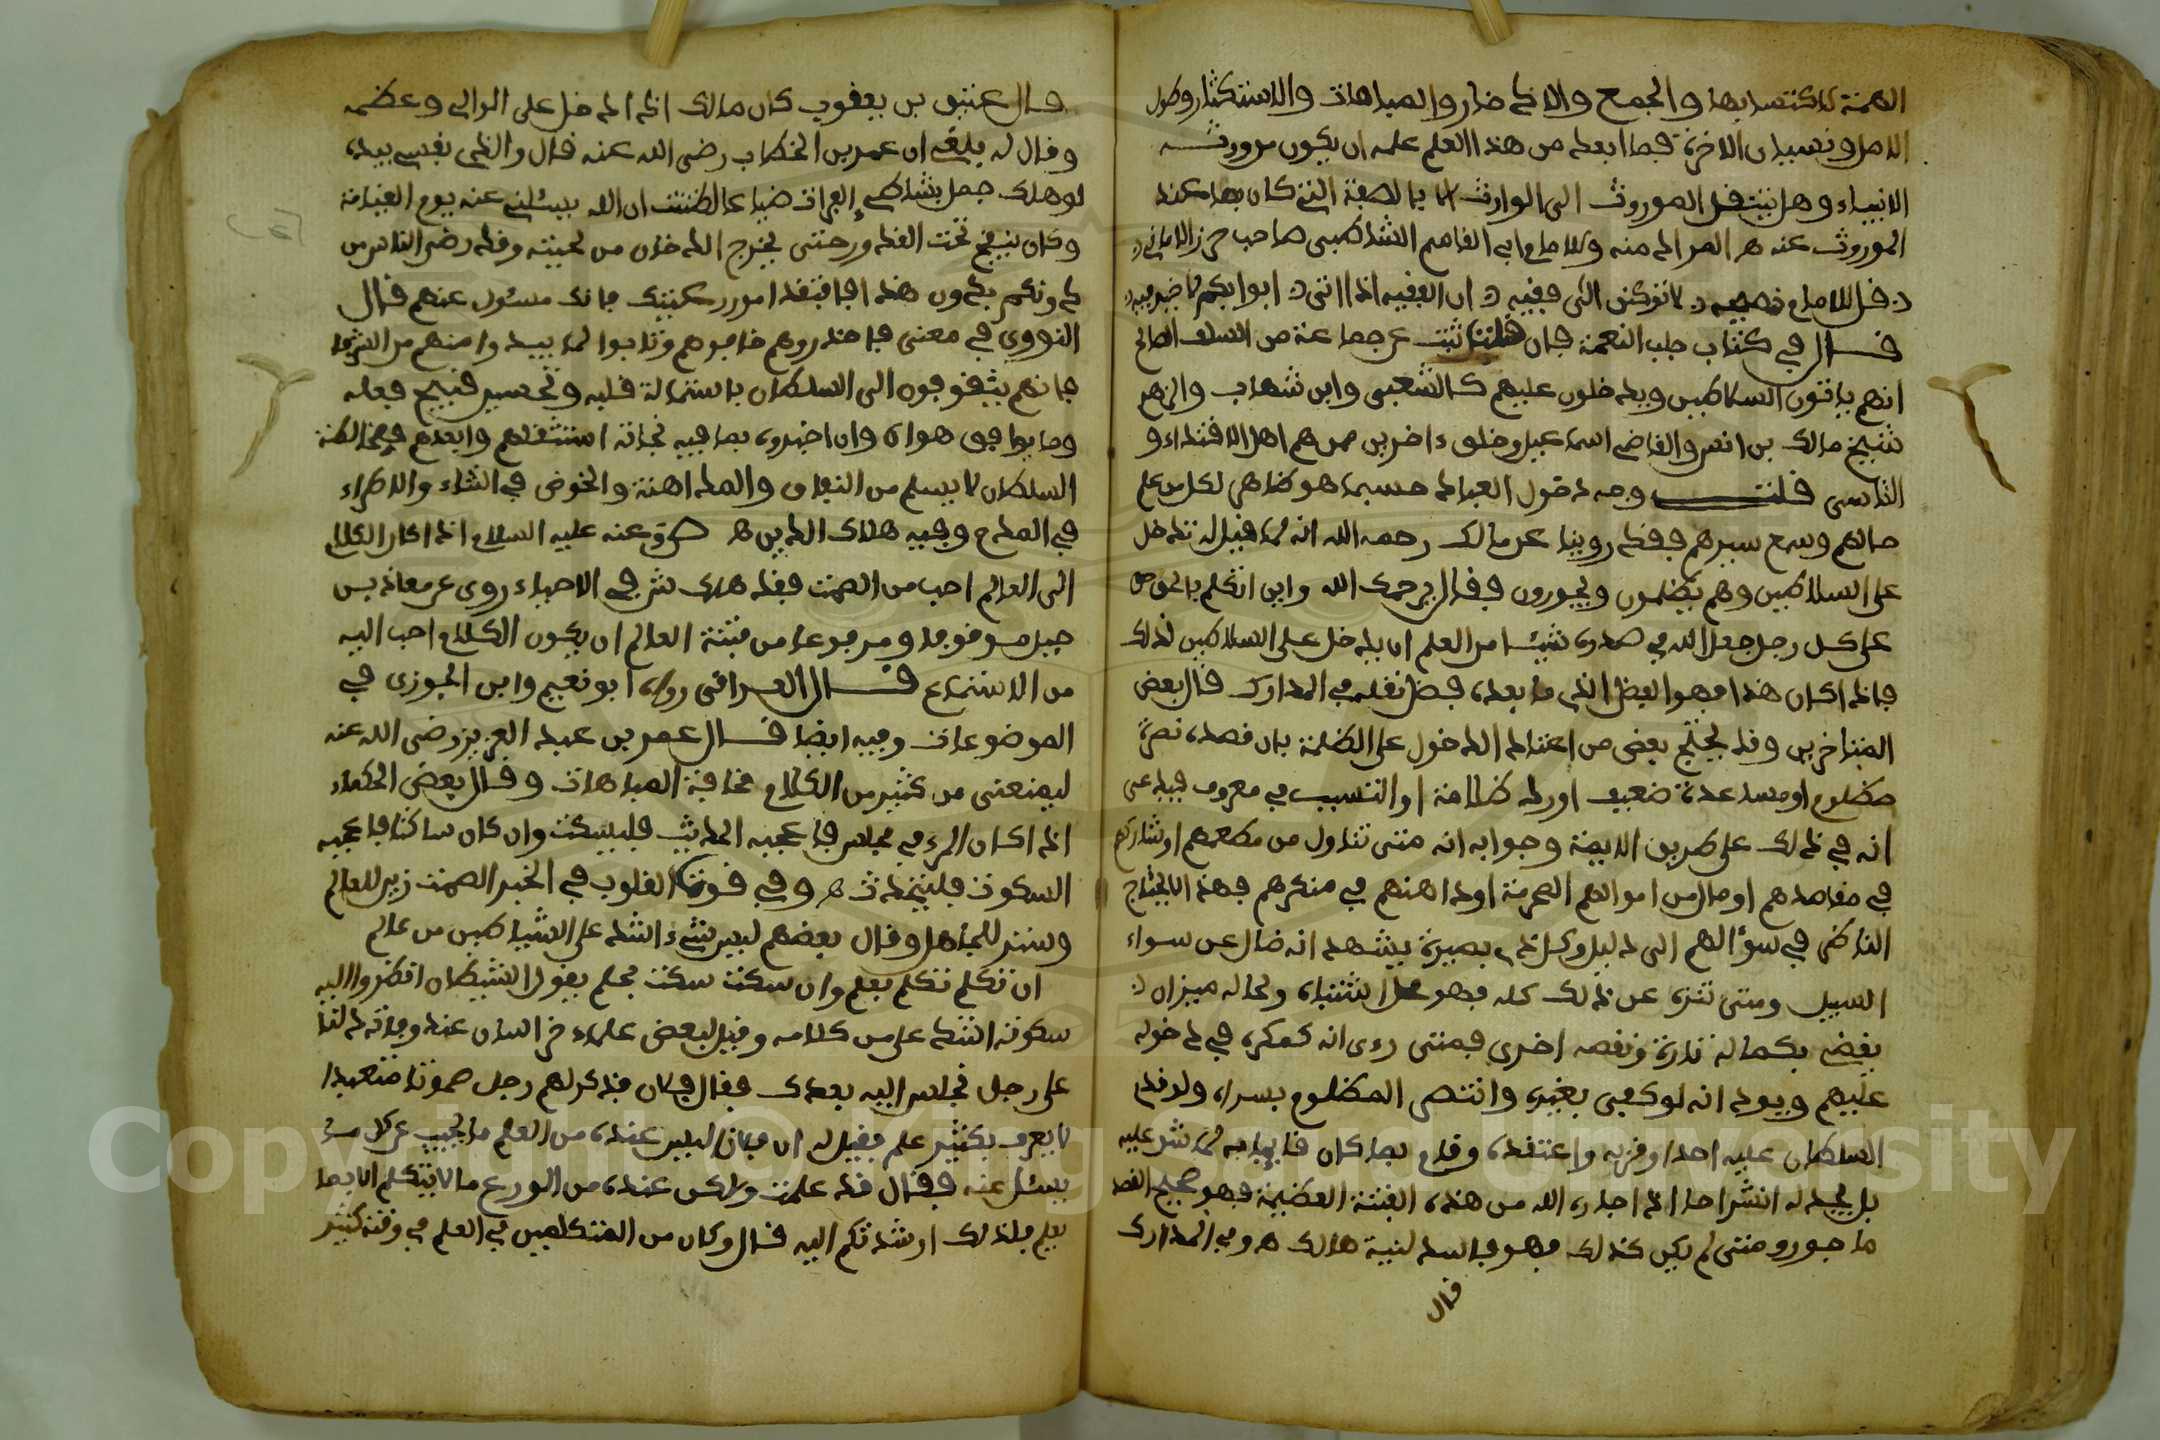 الهمة لاكتسابها والجمع والادخار والمباهات والاستكثار وطول
الامل ونسيان الاخرة فما ابعد من هذا العلم علمه ان يكون من ورثة
الانبياء وهل ينتقل الموروث الى الوارث الا بالصفة التي كان بها عند
الموروث عنه هـ المراد منه وللامام ابي القاسم الشاطبي صاحب حرز الاماني
قل للامير نصيحة لا تركنن الى فقيه ان الفقيه اذا اتى ابوابكم لا خير فيه
قال في كتاب جلب النعمة فان قلت ثبت عن جماعة من السلف الصالح
انهم ياتون السلاطين ويدخلون عليهم كالشعبي وابن شهاب والزهر
شيخ مالك بن انس والقاضي اسماعيل وخلق اخرين ممن هم اهل الاقتداء و
التاسي قلت وجه دخول العباد حسبما هو ظاهر لكل من علم
حالهم وسمع سيرهم فقد روينا عن مالك رحمه الله انه لما قيل له تدخل
على السلاطين وهم يظلمون ويجورون فقال يرحمك الله واين التكلم بالحق حق
على كل رجل جعل الله في صدره شيئا من العلم ان يدخل على السلاطين لذلك
فاذا كان هذا فهو الفضل الذي ما بعده فضل نقله في المدارك قال بعض
المتاخرين وقد يحتج بعض من اعتاد الدخول على الظلمة بان قصده نصرة
مظلوم او مساعدة ضعيف او رد ظلامة او التسبب في معروف فيدعى
انه في ذلك على طريق الايمة وجوابه انه متى تناول من مطعمهم او شاركهم
في مقاصدهم او مال من اموالهم المحرمة او داهنهم في منكرهم فهذا لا يحتاج
الناظر في سؤالهم الى دليل وكل ذي بصيرة يشهد انه ضال عن سواء
السبيل ومتى تنزه عن ذلك كله فهو محل اشتباه ولحاله ميزان
يقضي بكماله تارة ونقصه اخرى فمتى رءى انه كمكره في دخوله
عليهم ويود انه لو كفي بغيره وانتصر المظلوم بسواه ولو قدم
السلطان عليه احدا وقربه واعتقده وقام بما كان قايما به لم شر عليه
بل يجد له انشراحا اذ اجاره الله من هذه الفتنة العظيمة فهو صحيح القصد
ماجور ومتى لم يكن كذلك فهو فاسد لنية هالك هـ وفي المدارك
قال
قال عتيق بن يعقوب كان مالك اذا دخل على الوالي وعظه
وقال له بلغني ان عمر بن الخطاب رضي الله عنه قال والذي نفسي بيده
لو هلك جمل بشاطئ الفرات ضياعا لظننت ان الله يسئلني عنه يوم القيامة
وكان ينفخ تحت القدور حتى يخرج الدخان من لحيته وقد رضى الناس من
دونكم بدون هذا فافتقد امور رعيتك فانك مسئول عنهم قال
النووي في معنى فاحذروهم خافوهم وتابوا لما يبدوا منهم من الشر
فانهم يتقوبون الى السلطان باستمالة قلبه وتحسين قبيح فعله
وما يوافق هواه وان اخبروه بما فيه نجاته استثقلهم وابعدهم فمخالطة
السلطان لا يسلم من النفاق والمداهنة والخوض في الثناء والاطراء
في المدح وفيه هلاك الدين هـ وعنه عليه السلام اذا كان الكلام
الى العالم احب من الصمت فقد هلك ش في الاحياء روى عن معاذ بن
جبل موقوفا ومرفوعا من فتنة العالم ان يكون الكلام احب اليه
من الاستماع قال العراقي رواه ابو نعيم وابن الجوزي في
الموضوعات وفيه ايضا قال عمر بن عبد العزيز رضي الله عنه
ليمنعني من كثير من الكلام مخافة المباهات وقال بعض الحكماء
اذا كان المرء في مجلس فاعجبه الحديث فليسكت وان كان ساكتا فاعجبه
السكوت فليتحدث هـ وفي قوت القلوب في الخبر الصمت زين للعالم
وستر للجاهل وقال بعضهم ليس شيء اشد على الشياطين من عالم
ان تكلم تكلم بعلم وان سكت سكت بحلم يقول الشيطان انظروا اليه
سكوته اشد على من كلامه وقيل لبعض علماء خراسان عند وفاته دلنا
على رجل نجلس اليه بعدك فقال فلان فذكر لهم رجل صموتا متعبدا
لا يعرف بكثير علم فقيل له ان فلانا ليس عنده من العلم ما يجيب عن كل ما
يسئل عنه فقال قد علمت ولكن عنده من الورع ما لا يتكلم الا بما
يعلم فلذلك ارشدتكم اليه قال وكان من المتكلمين في العلم في وقته كثير
Copyright © King Saud University